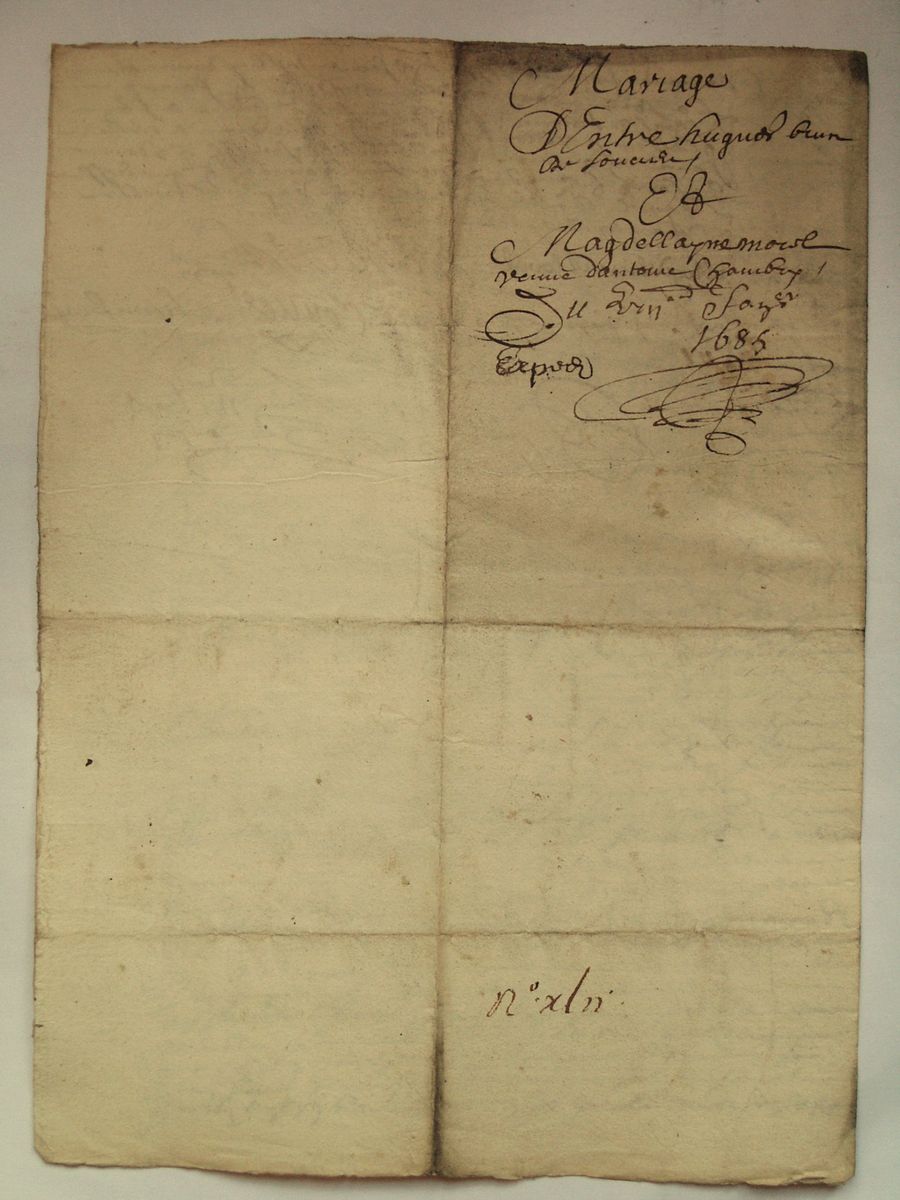 Mariage
D'Entre hugues brun
de
Et
Magdellayne morel
vefve dantoine Chambry
Du xvii Janer
1685
Expedé
No xlii